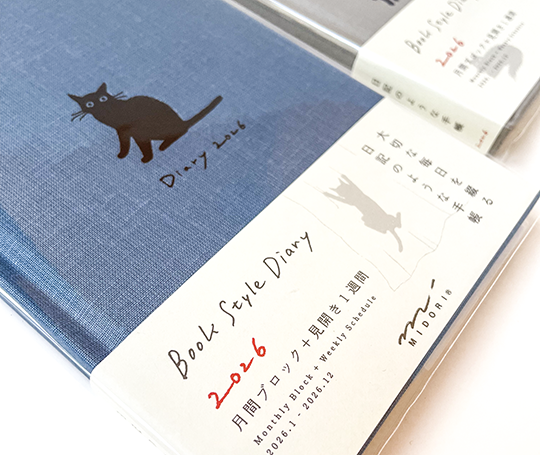 Diary 2026
大切な毎日を綴る
日記のような手帳
Book Style Diary
2026
月間ブロック+見開き1週間
Monthly Block + Weekly Schedule
2026.1 - 2026.12
MIDORI®
Book Style Diary
2026
日記のような手帳
2026